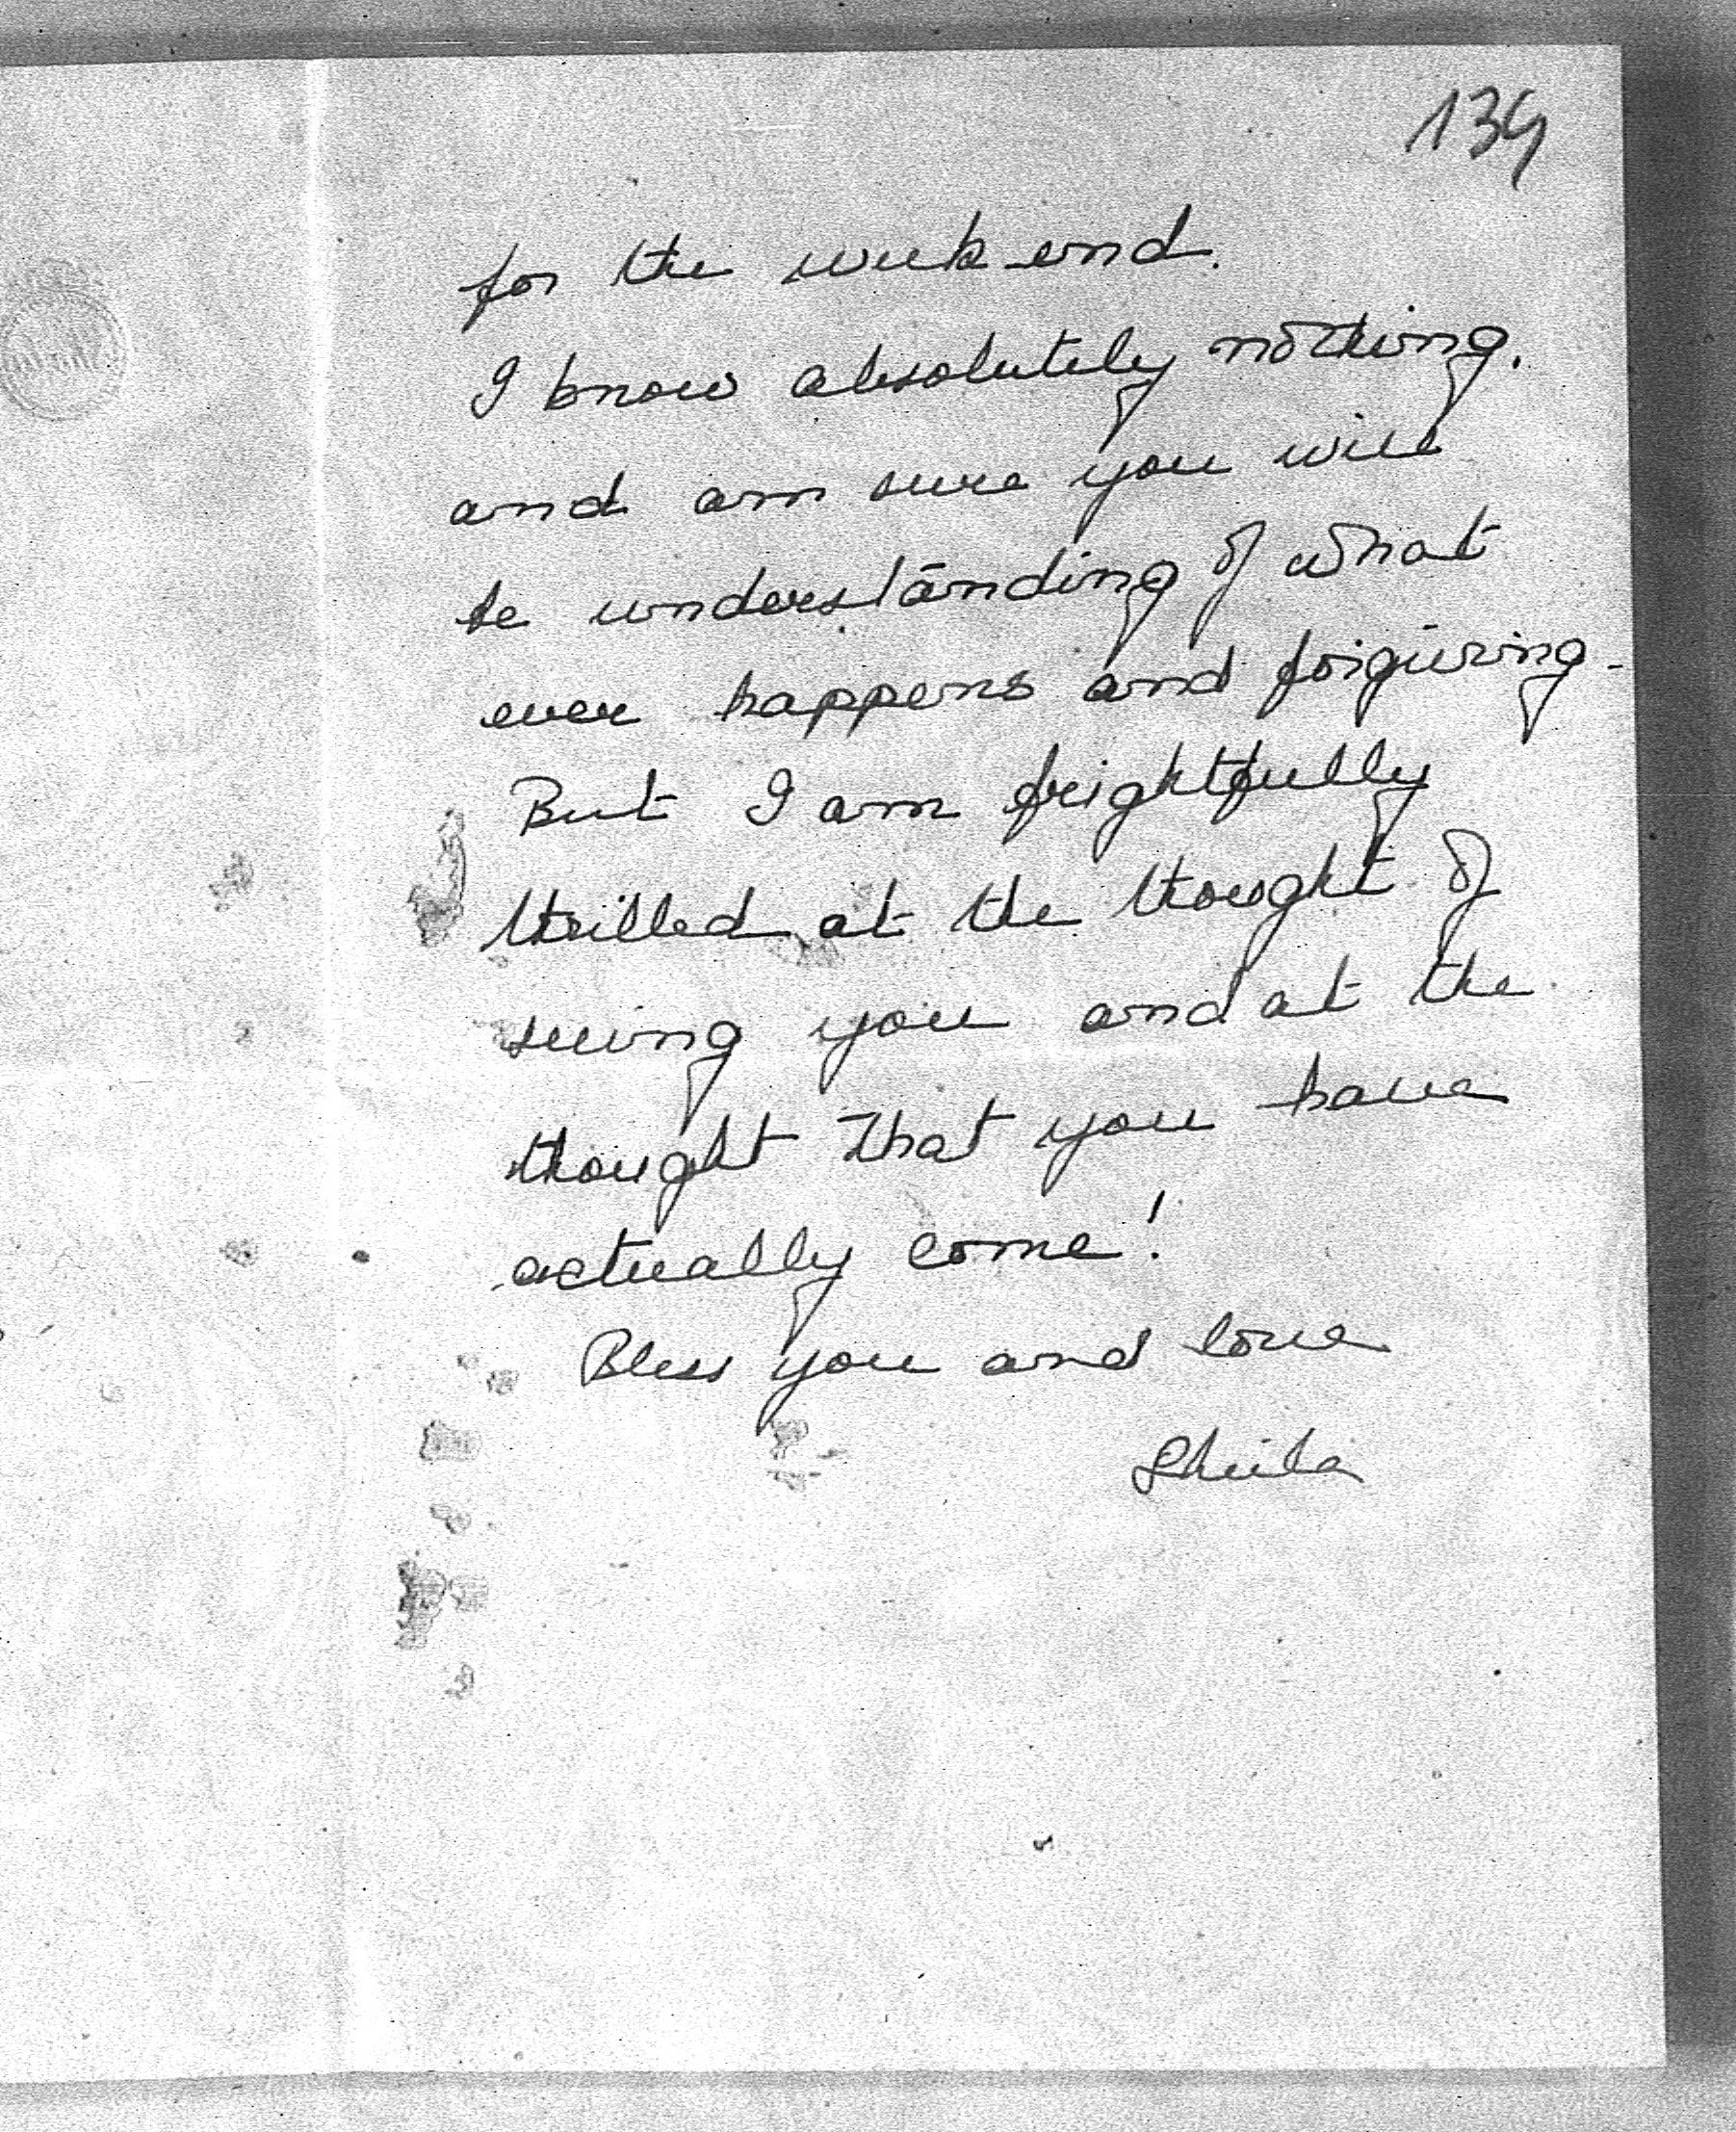 139
for the week-end.
I know absolutely nothing.
and am sure you will
be understanding of what
ever happens and forgiving -
But I am frightfully
thrilled at the thought of
seeing you and at the
thought that you have
actually come!
Bless you and love
Sheila